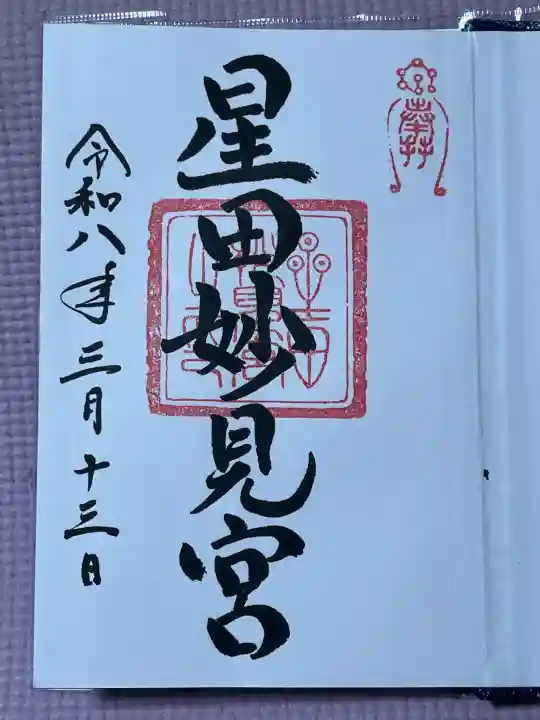 奉拝
星田妙見宮
令和八年三月十三日